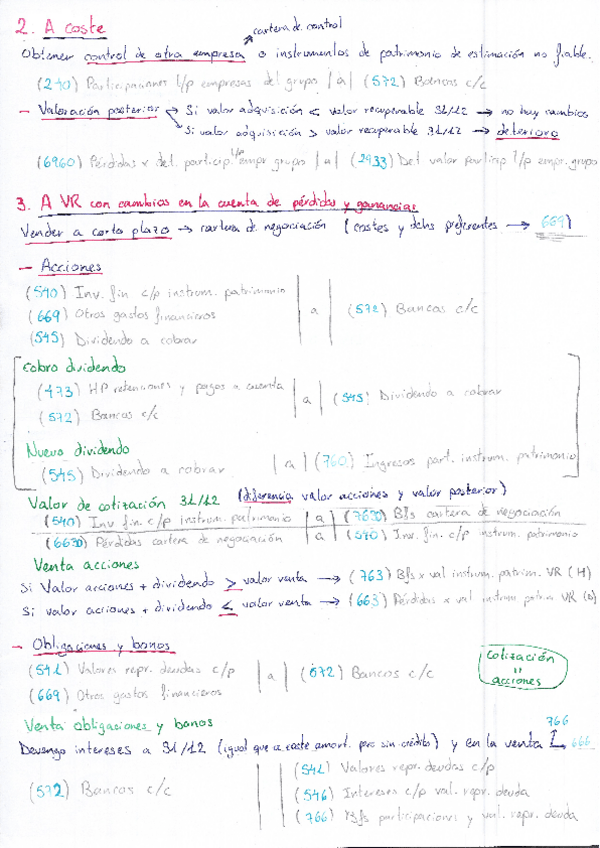 2. A coste
cartera de control
Obtener control de otra empresa o instrumentos de patrimonio de estimación no fiable.
(240) Participaciones l/p empresas del grupo | a | (572) Bancos c/c
- Valoración posterior → Si valor adquisición < valor recuperable 31/12 → no hay cambios
→ Si valor adquisición > valor recuperable 31/12 → deterioro
(6960) Pérdidas x det. particip. l/p empr grupo | a | (2933) Det valor particip l/p empr. grupo
3. A VR con cambios en la cuenta de pérdidas y ganancias
Vender a corto plazo → cartera de negociación (costes y dchs preferentes → 669)
- Acciones
(540) Inv. fin c/p instrum. patrimonio
(669) Otros gastos financieros | a | (572) Bancos c/c
(545) Dividendo a cobrar
Cobro dividendo
(473) HP retenciones y pagos a cuenta | a | (545) Dividendo a cobrar
(572) Bancos c/c
Nuevo dividendo
(545) Dividendo a cobrar | a | (760) Ingresos part. instrum. patrimonio
Valor de cotización 31/12 (diferencia valor acciones y valor posterior)
(540) Inv fin. c/p instrum. patrimonio | a | (7630) Bfs cartera de negociación
(6630) Pérdidas cartera de negociación | a | (540) Inv. fin. c/p instrum. patrimonio
Venta acciones
Si Valor acciones + dividendo > valor venta → (763) Bfs x val instrum. patrim. VR (H)
Si valor acciones + dividendo < valor venta → (663) Pérdidas x val instrum patrim VR (D)
- Obligaciones y bonos
(541) Valores repr. deudas c/p | a | (572) Bancos c/c
(669) Otros gastos financieros
cotización
=
acciones
Venta obligaciones y bonos
766
Devengo intereses a 31/12 (igual que a coste amort. pero sin crédito) y en la venta 666
(572) Bancos c/c
(541) Valores repr. deudas c/p
(546) Intereses c/p val. repr. deuda
(766) Bfs participaciones y val. repr. deuda